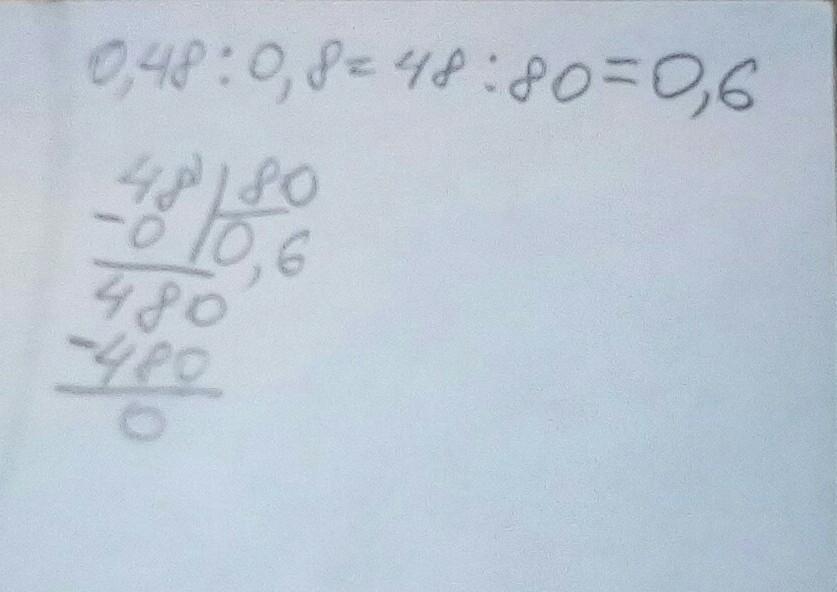 0,48:0,8=48:80=0,6
48|80
-0|0,6
480
-480
0